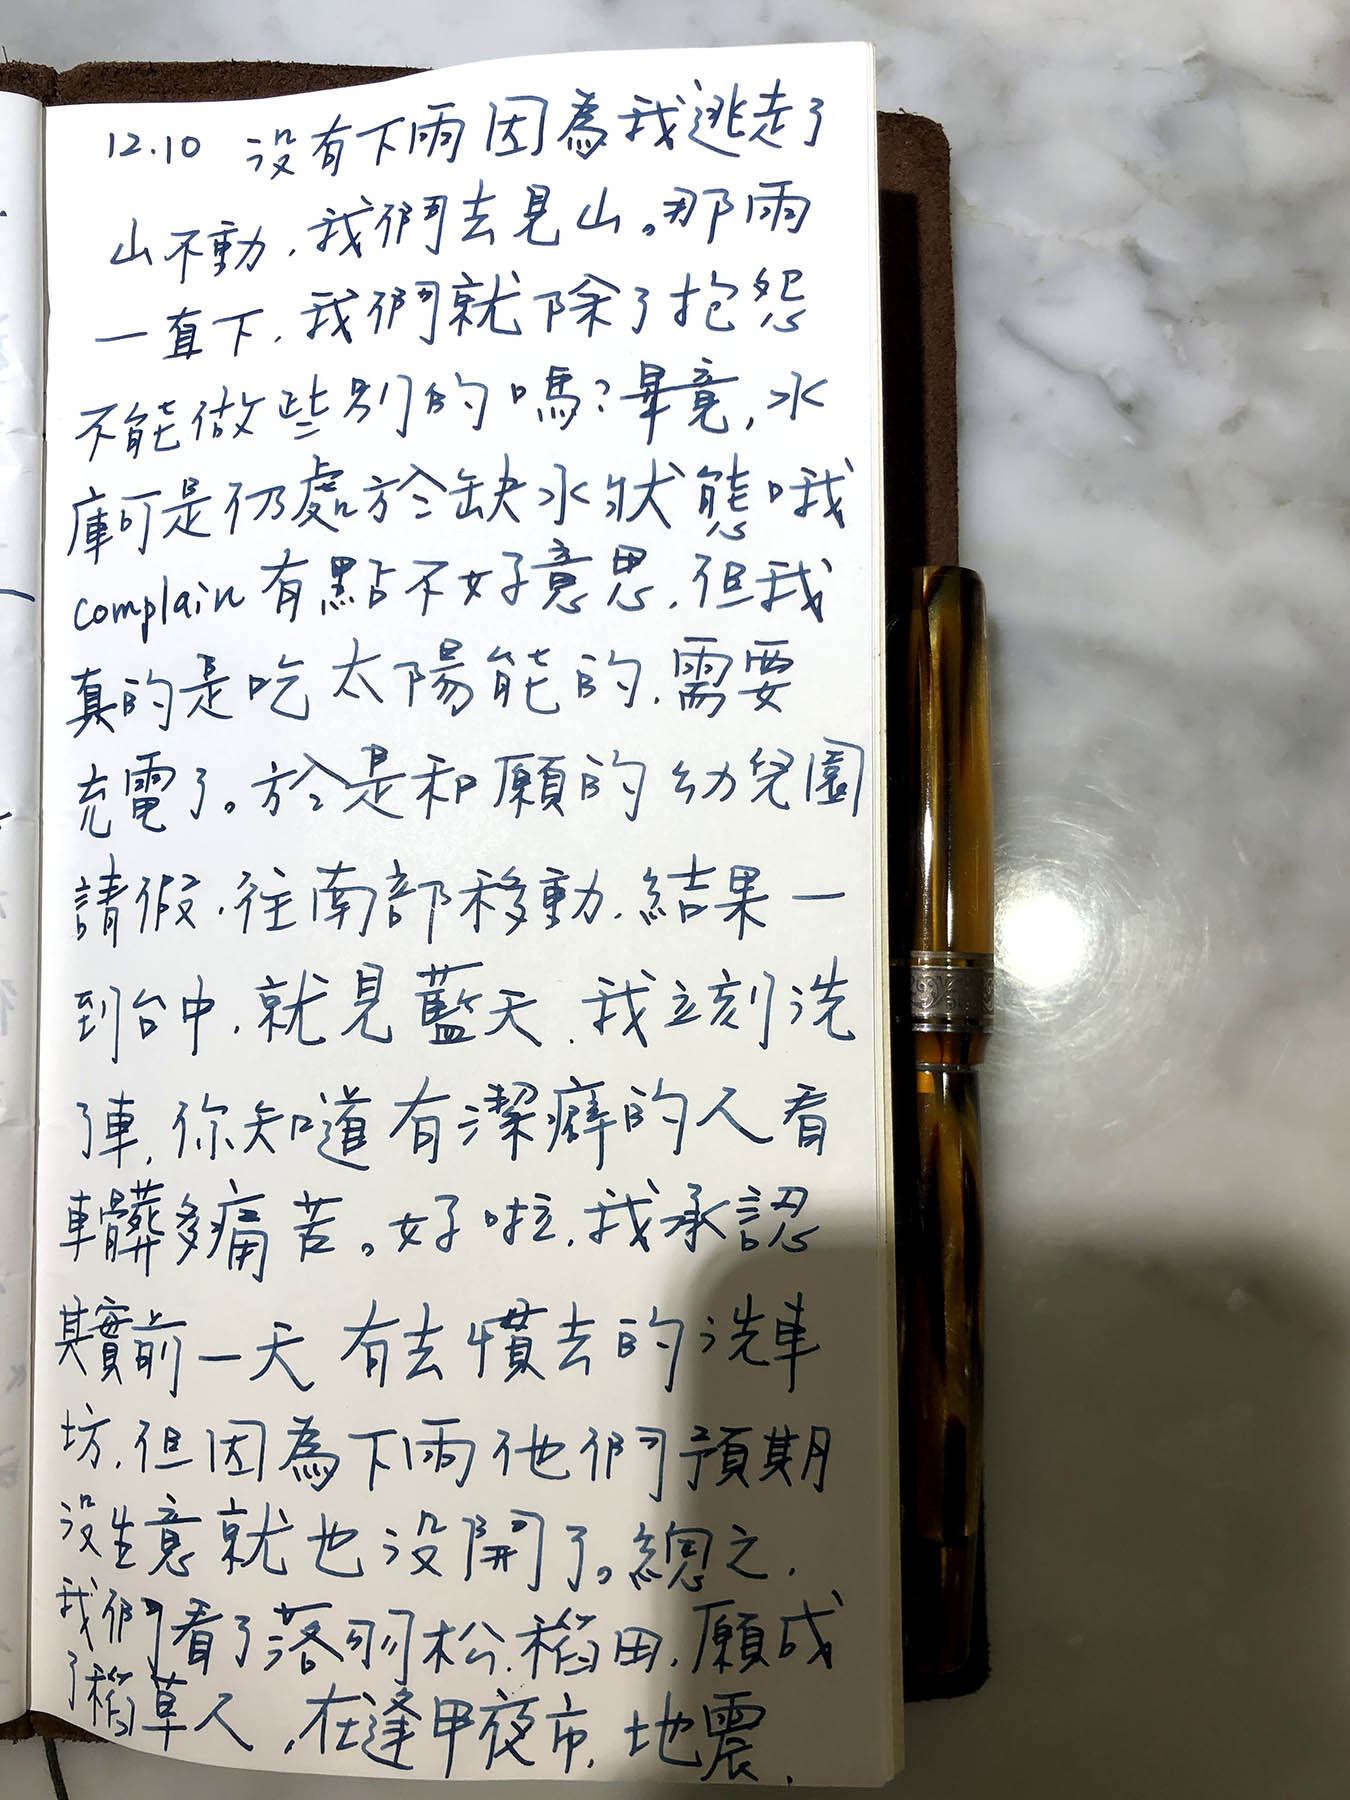 12.10 沒有下雨因為我逃走了
山不動,我們去見山。那雨
一直下,我們就除了抱怨
不能做些別的嗎?畢竟,水
庫可是仍處於缺水狀態哦
complain有點不好意思,但我
真的是吃太陽能的,需要
充電了。於是和願的幼兒園
請假,往南部移動,結果一
到台中,就見藍天,我立刻洗
了車,你知道有潔癖的人看
車髒多痛苦。好啦,我承認
其實前一天有去慣去的洗車
坊,但因為下雨他們預期
沒生意就也沒開了。總之,
我們看了落羽松,稻田,願成
了稻草人,在逢甲夜市,地震,